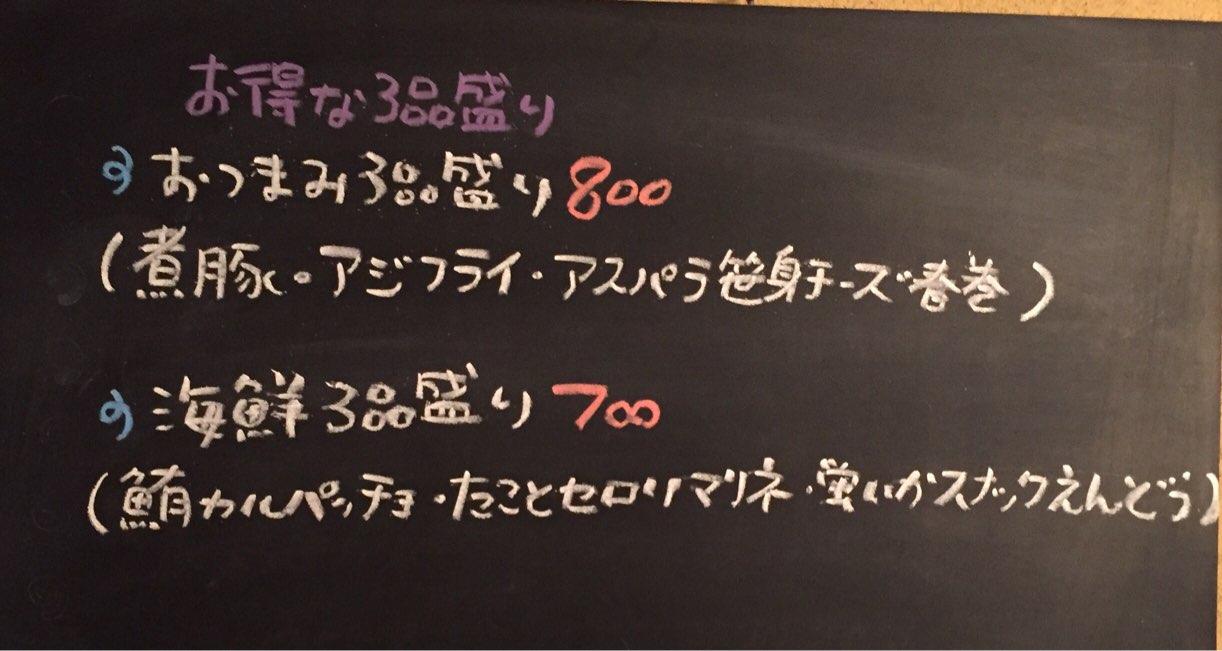 お得な3品盛り
おつまみ3品盛り800
(煮豚・アジフライ・アスパラ笹身チーズ春巻)
海鮮3品盛り700
(鮪カルパッチョ・たことセロリマリネ・蛍いかスナックえんどう)